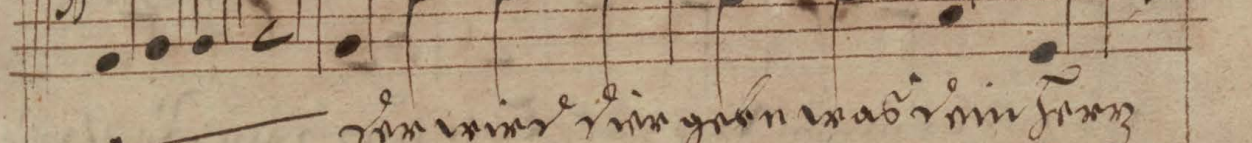 der wird dier geben was dein Herz